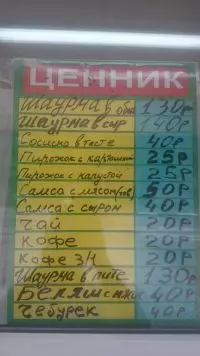 ЦЕННИК
Шаурма в 130р
Шаурма в сыр 140р
Сосиска в тесте 40р
Пирожок с картошкой 25р
Пирожок с капустой 25р
Самса с мясом 50р
Самса с сыром 40р
Чай 20р
Кофе 20р
Кофе 3/1 20р
Шаурма в пите 130р
Беляш с мясом 40р
Чебурек 40р